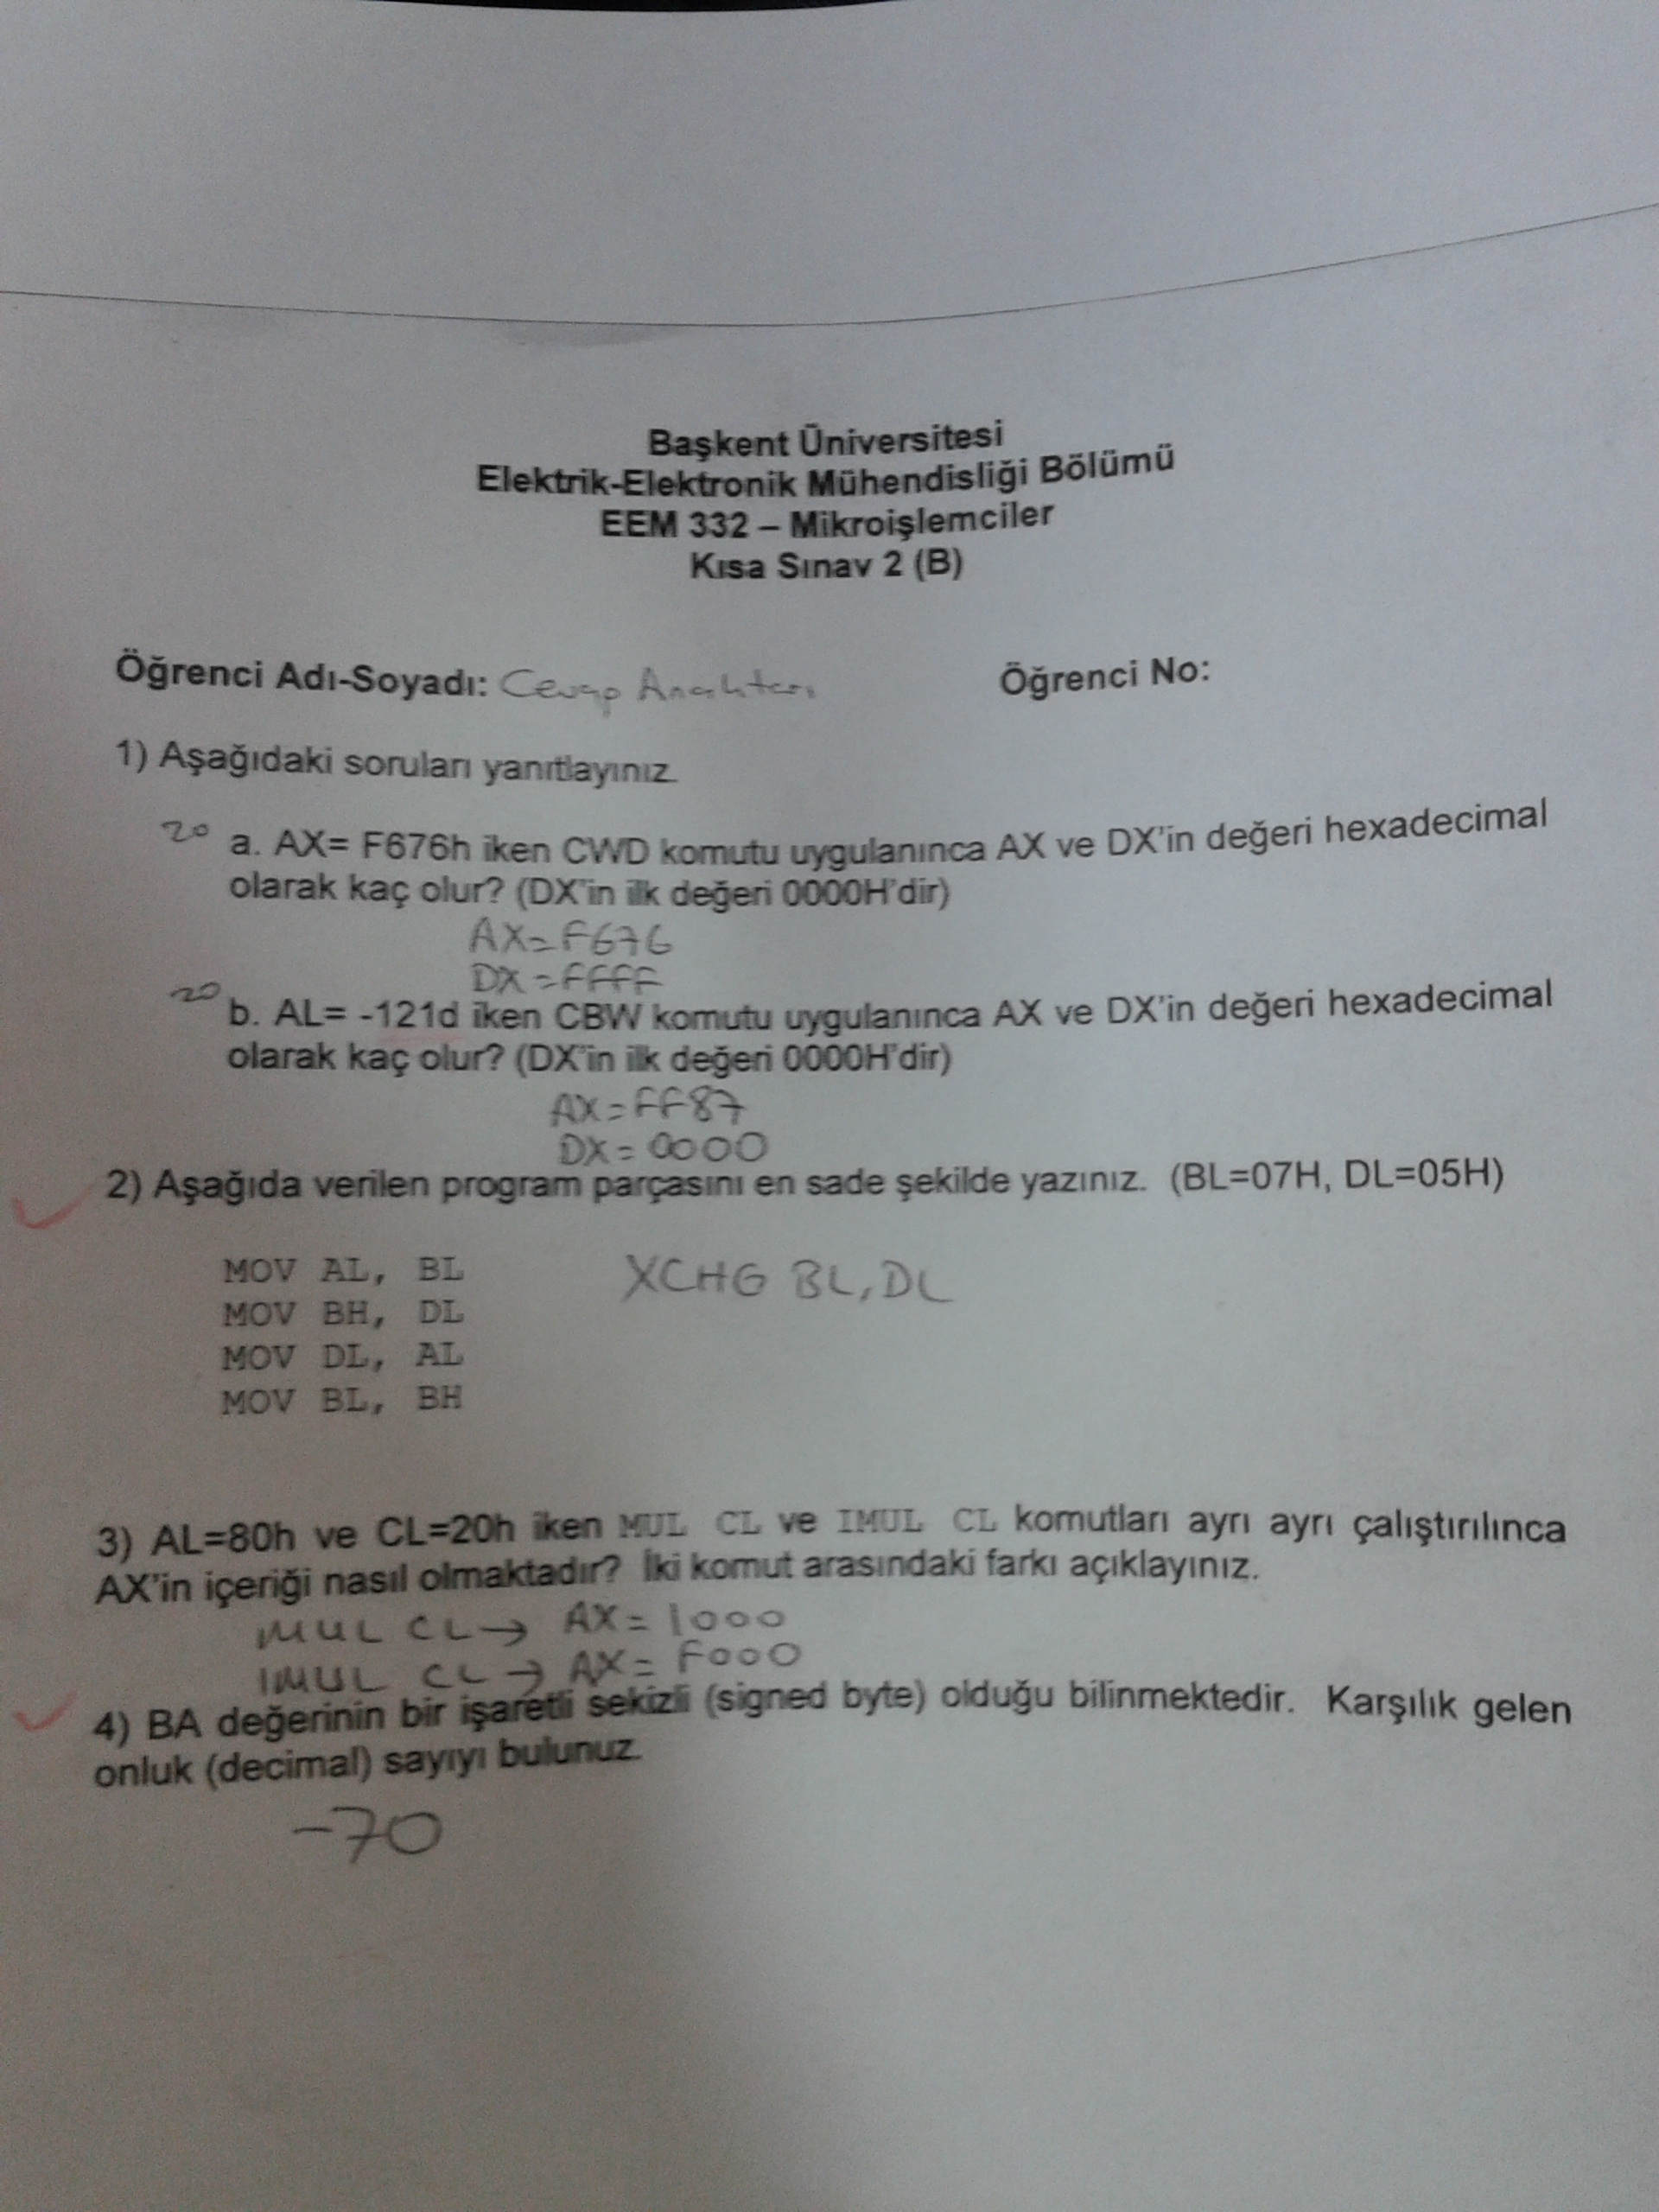 Başkent Üniversitesi
Elektrik-Elektronik Mühendisliği Bölümü
EEM 332 – Mikroişlemciler
Kısa Sınav 2 (B)
Öğrenci Adı-Soyadı: Cevap Anahtarı Öğrenci No:
1) Aşağıdaki soruları yanıtlayınız.
20 a. AX= F676h iken CWD komutu uygulanınca AX ve DX'in değeri hexadecimal
olarak kaç olur? (DX'in ilk değeri 0000H'dir)
AX=F676
DX=FFFF
20 b. AL= -121d iken CBW komutu uygulanınca AX ve DX'in değeri hexadecimal
olarak kaç olur? (DX'in ilk değeri 0000H'dir)
AX=FF87
DX=0000
2) Aşağıda verilen program parçasını en sade şekilde yazınız. (BL=07H, DL=05H)
MOV AL, BL XCHG BL,DL
MOV BH, DL
MOV DL, AL
MOV BL, BH
3) AL=80h ve CL=20h iken MUL CL ve IMUL CL komutları ayrı ayrı çalıştırılınca
AX'in içeriği nasıl olmaktadır? İki komut arasındaki farkı açıklayınız.
MUL CL→ AX=1000
IMUL CL→ AX=F000
4) BA değerinin bir işaretli sekizli (signed byte) olduğu bilinmektedir. Karşılık gelen
onluk (decimal) sayıyı bulunuz.
-70